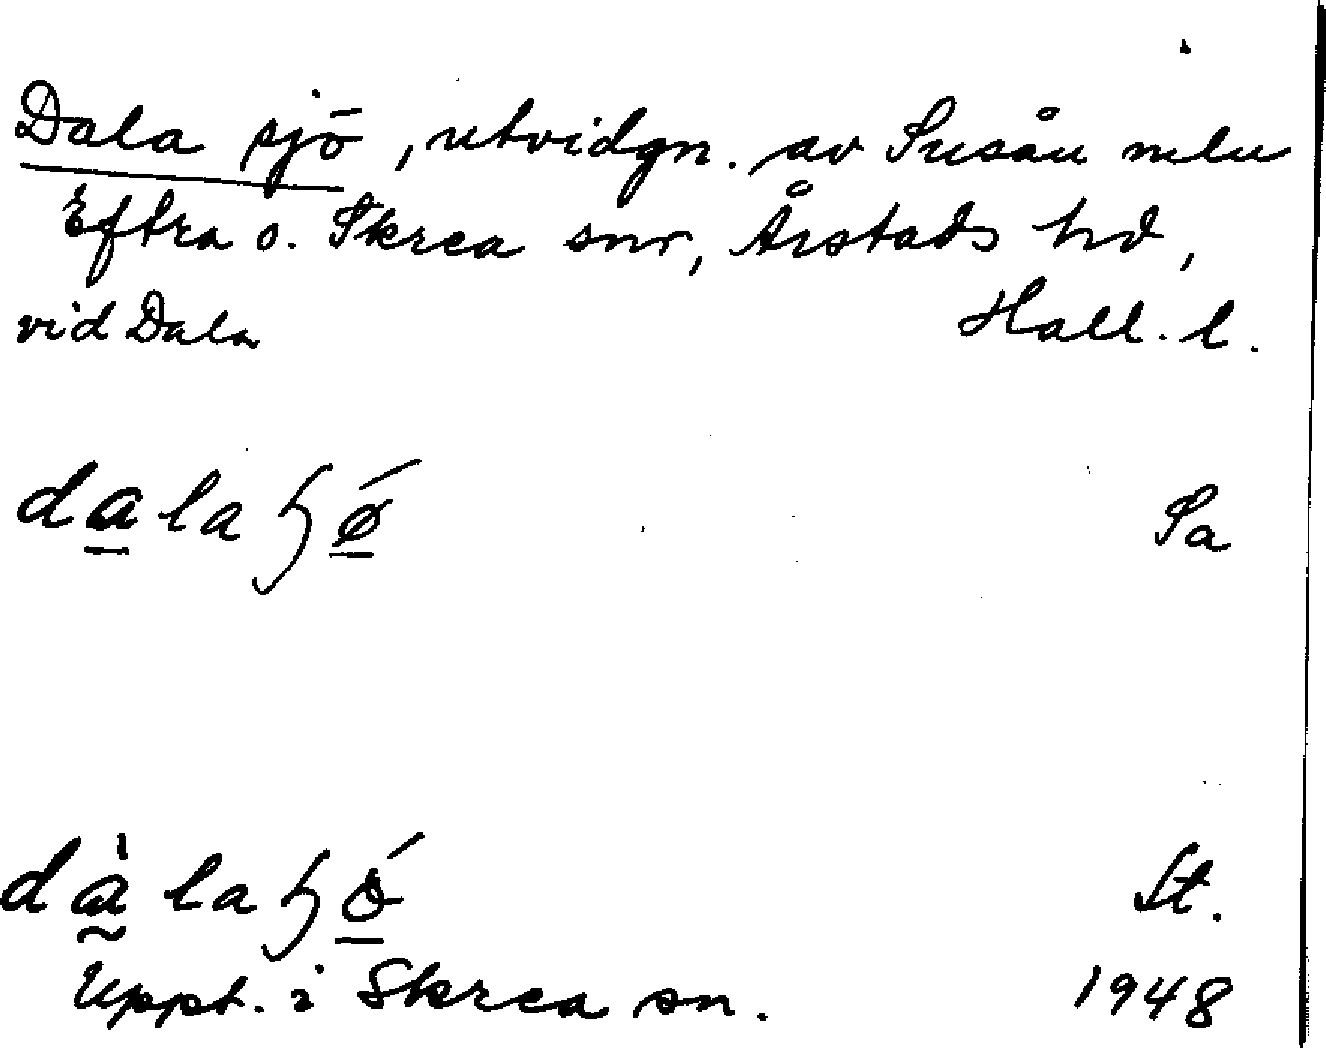 Dala sjö, utvidgn. av Susån mlu
Eftra o. Skrea snr, Årstads hd,
vid Dala Hall. l.
dalaɧǿ Sa
dàlaɧó St.
Uppt. i Skrea sn. 1948